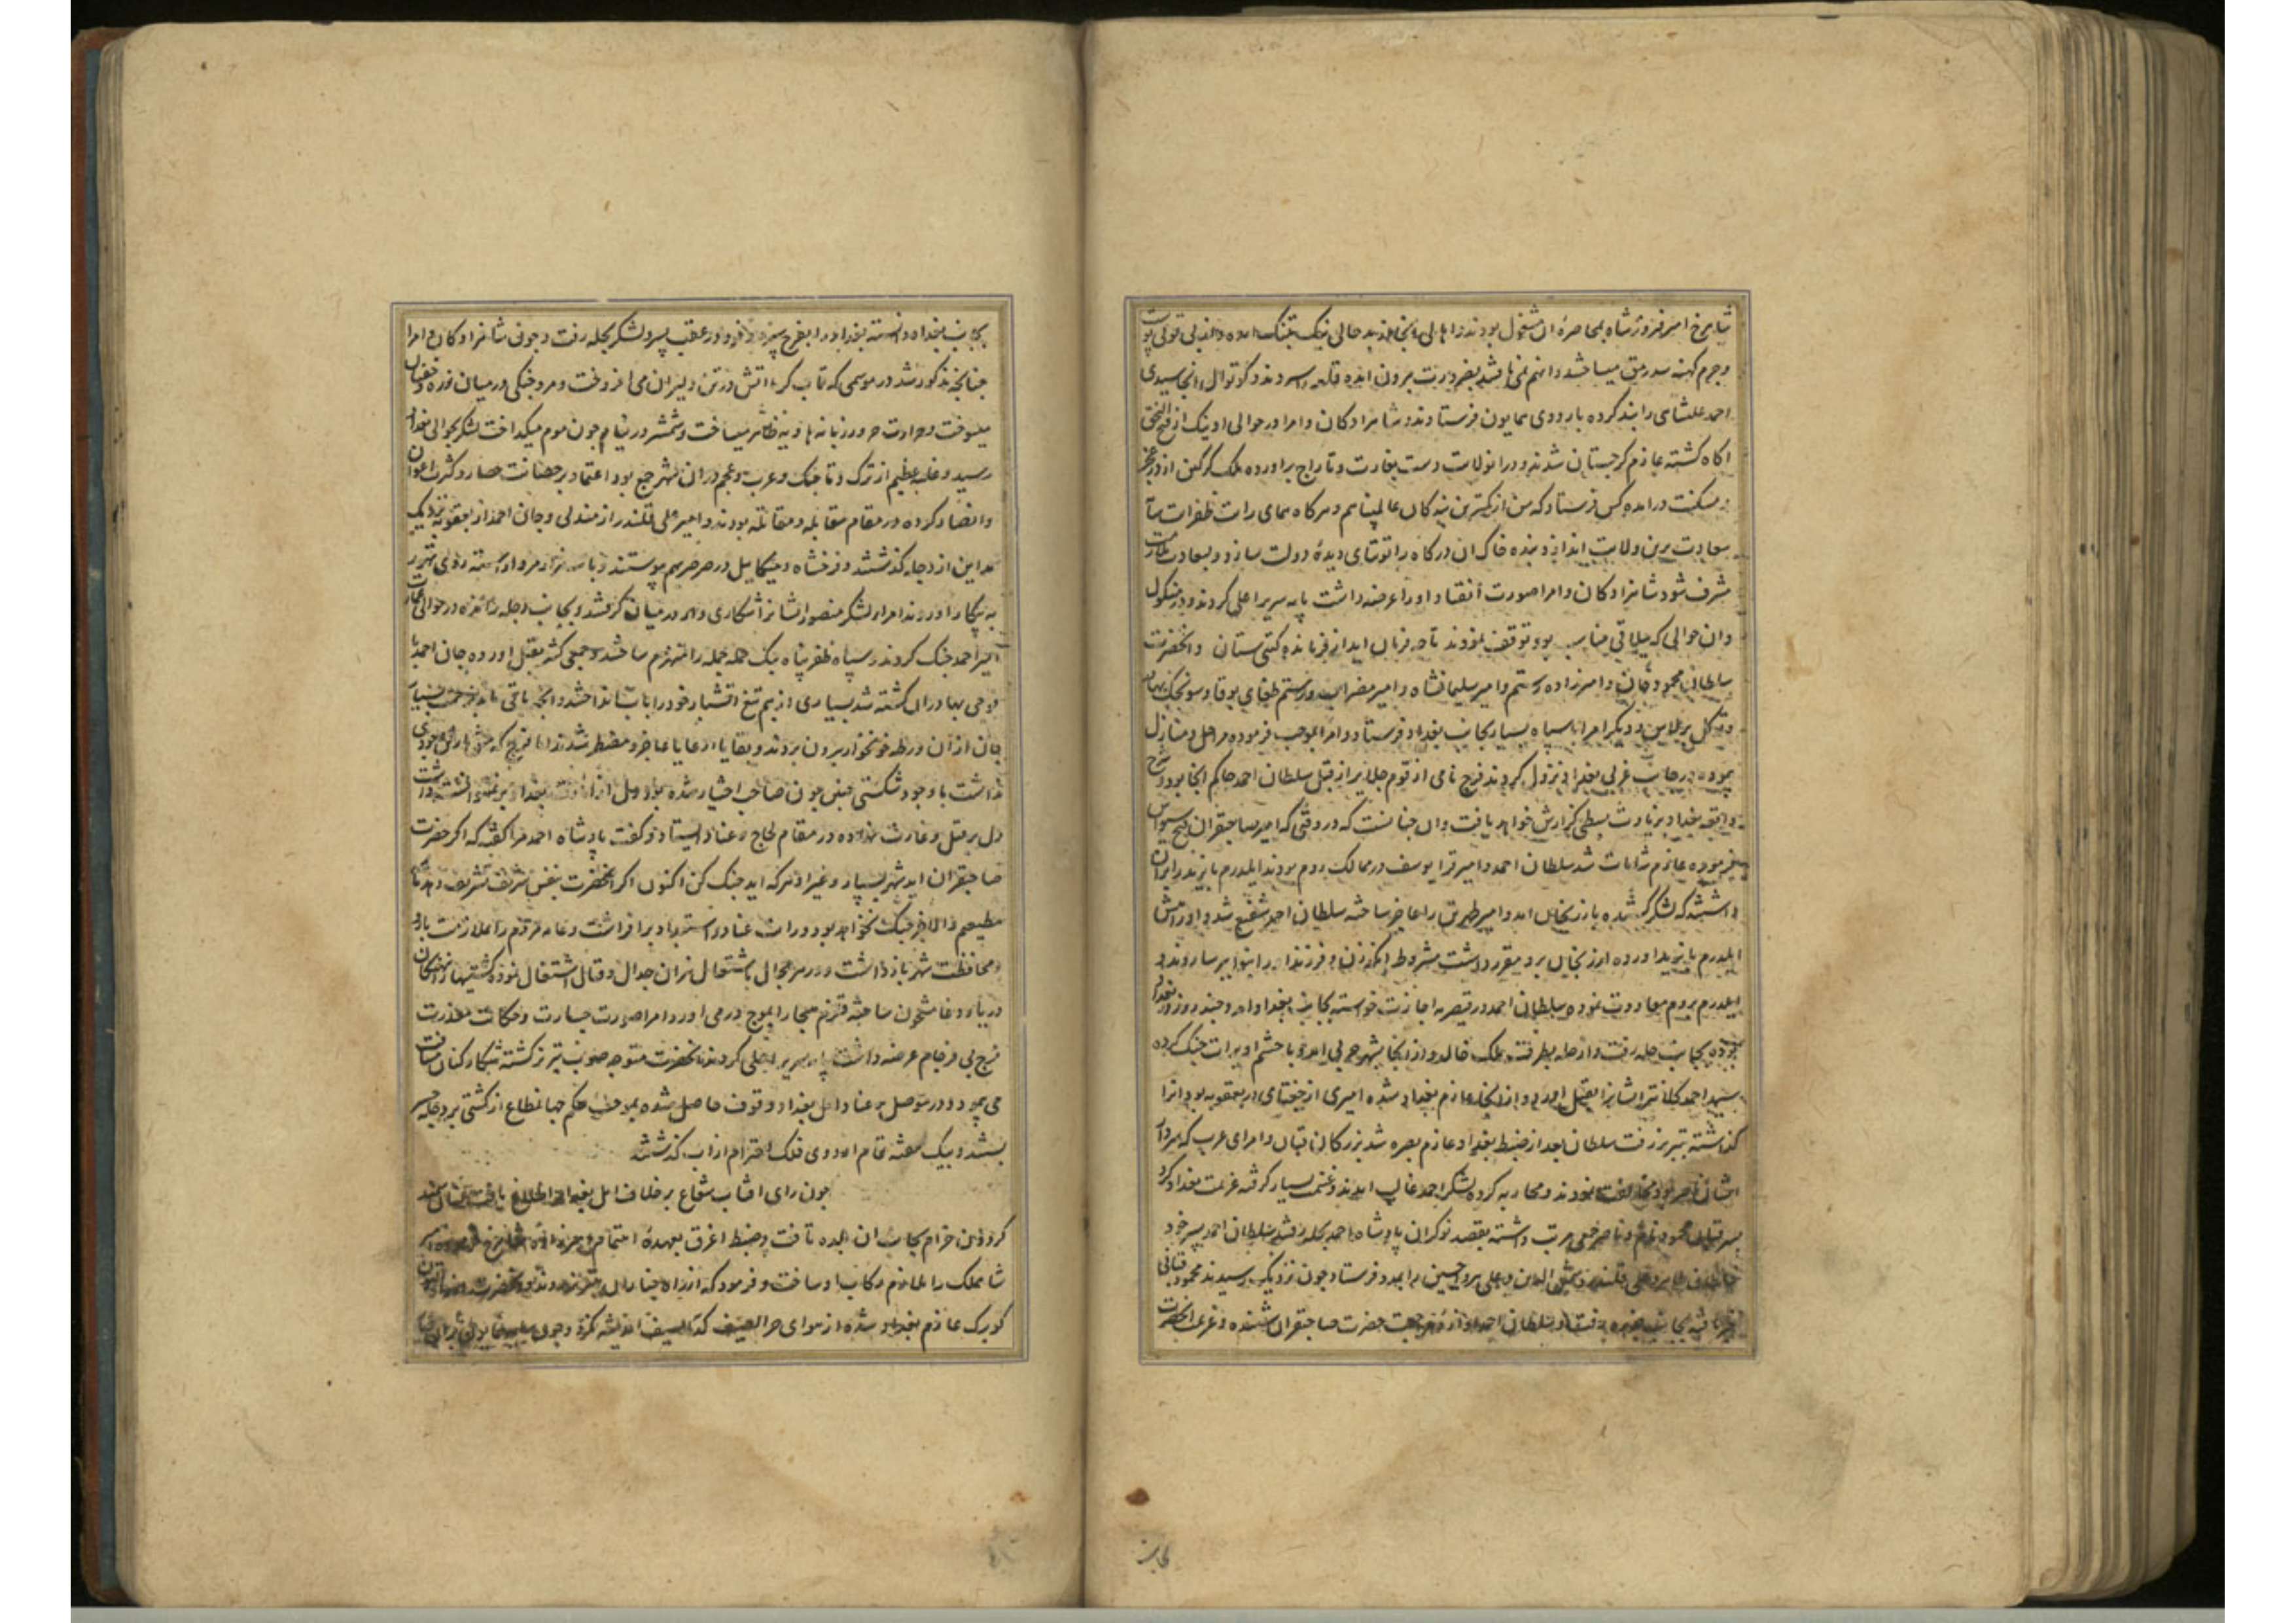 شاهرخ امیر فیروزشاه بمحاصرهٔ آن مشغول بودند و اهالی آنجا
و چرم کهنه سد رمق میساختند و آنهم نمی یافتند بضرورت بیرون آمده قلعه بسپردند و کوتوال آنجا سیدی
احمد علشاهی را بند کرده باردوی همایون فرستادند و شاهزادکان و امرا در حوالی اونیک از فتح النجق
اکاه کشته عازم کرجستان شدند و در انولایت دست بغارت و تاراج براورده ملک کرکین از در عجز
و مسکنت درامده کس فرستاد که من از کمترین بندکان عالمپناهم و هرکاه همای رایت ظفرایت سایهٔ
سعادت برین ولایت اندازد بنده خاک آن درکاه را توتیای دیدهٔ دولت سازد و بسعادت
مشرف شود شاهزادکان و امرا صورت انقیاد او را عرضه داشت پایه سریر اعلی کردند و در منکول
و آن حوالی که ییلاقی مناسب بود توقف نمودند تا چه فرمان آید از فرمانده کیتی ستان و آنحضرت
سلطان محمود خان و امیرزاده رستم و امیر سلیمانشاه و امیر مضراب و رستم طغای بوقا و سونجک بهادر
و توکل برلاس و دیکر امرا با سپاه بسیار بجانب بغداد فرستاد و امرا بموجب فرموده مراحل و منازل
پیموده در جانب غربی بغداد نزول کردند فرج نامی از قوم جلایر از قبل سلطان احمد حاکم آنجا بود و شرح
واقعه بغداد بزیادت بسطی کزارش خواهد یافت و آن چنانست که در وقتی که امیر صاحبقران فتح سیواس
فرموده عازم شامات شد سلطان احمد و امیر قرا یوسف در ممالک روم بودند ایلدرم بایزید را بران
داشتند که لشکر کشیده بارزنجان آمد و امیر طهرتن را عاجز ساخته سلطان احمد شفیع شد و او را پیش
ایلدرم بایزید آورده ارزنجان برو مقرر داشت مشروط بآنکه زن و فرزند را بنوا ببرسا روند و
ایلدرم بروم معاودت نموده سلطان احمد در قیصریه اجازت خواسته بجانب بغداد آمد و چند روز در بغداد
بوده بجانب حله رفت و از حله بطرف ملک خالد و از آنجا بشهر حربی آمد و با حشم اویرات جنک کرده
سید احمد کلانتر ایشانرا بقتل آورد و از آنجا عازم بغداد شده امیری از جغتای در بعقوبه بود آنرا
کذاشته بتبریز رفت سلطان بعد از ضبط بغداد عازم بصره شد بزرکان قبان و امرای عرب که سردار
ایشان ناصر بود مخالفت نمودند و محاربه کرده لشکر احمد غالب آمدند و غنیمت بسیار کرفته عزیمت بغداد کرد
پسر قبان محمود نام و ناصر خیمی مرتب داشته بقصد نوکران پادشاه احمد بحله رفتند سلطان احمد پسر خود
علی قلندر و شیخ و حسین را بمدد فرستاد چون نزدیک رسیدند محمود قبانی
بجانب رفت و سلطان احمد آوازهٔ مراجعت حضرت صاحبقران شنیده و عزیمت آنحضرت
بجانب بغداد دانسته بغداد را بفرج سپرد و در عقب پسر و لشکر بحله رفت و چون شاهزادکان و امرا
چنانچه مذکور شد در موسمی که تاب کرما آتش در تن دلیران می افروخت و مرد جنکی در میان زره و خفتان
میسوخت و حرارت حرور زبانه هاویه ظاهر میساخت و شمشیر در نیام چون موم میکداخت لشکر بحوالی بغداد
رسید و غلبهٔ عظیم از ترک و تاجیک و عرب و عجم دران شهر جمع بود و اعتماد بر حصانت حصار و کثرت اعوان
و انصار کرده در مقام مقابله و مقاتله بودند و امیر علی قلندر از مندلی و جان احمد از بعقوبه نزدیک
مداین از دجله کذشتند و فرخشاه و میکاییل در صرصر بهم پیوستند و با سه هزار مرد آراسته روی تهور
به پیکار آوردند امرا و لشکر منصور ایشانرا شکاری وار در میان کرفتند و بجانب دجله رانده در حوالی عمارت
امیر احمد جنک کردند و سپاه ظفرپناه بیک حمله جمله را منهزم ساختند و جمعی کثیر بقتل آورده جان احمد با
فوجی بهادران کشته شد بسیاری از بیم تیغ آتشبار خود را باب انداختند و آنچه باقی ماند بزحمت بسیار
جان از آن ورطه خونخوار بیرون بردند و بقایا رعایا عاجز و مضطر شدند اما فرج که
نداشت با وجود شکستی چنین چون صاحب اختیار شده بود دل از بغداد برنمی توانست داشت
دل بر قتل و غارت نهاده در مقام لجاج و عناد ایستاد و کفت پادشاه احمد مرا کفته که اکر حضرت
صاحبقران آید شهر بسپار و غیر از هرکه آید جنک کن اکنون اکر آنحضرت بنفس شریف تشریف دهد ما
مطیعیم و الا بجز جنک نخواهد بود و رایت عناد و استبداد برافراشت و عامه مردم را بملازمت بارو
و محافظت شهر بازداشت و در هر مجال باشتعال نیران جدال و قتال اشتغال نمود و کشتیها از نهنکان
دریای وغا مشحون ساخته قلزم هیجا را بموج درمی آورد امرا صورت جسارت و حکایت معذرت
فرج بی فرجام عرضه داشت پایه سریر اعلی کردند آنحضرت متوجه صوب تبریز کشته شکارکنان مسافت
می پیمود و در موصل بر عناد اهل بغداد وقوف حاصل شده بموجب حکم جهانمطاع از کشتی بر دجله جسر
بستند و بیک هفته تمام اردوی فلک احترام از آب کذشتند
چون رای آفتاب شعاع بر خلاف اهل بغداد اطلاع یافت عنان سمند
کردون خرام بجانب آن بلده تافت و ضبط اغرق بعهدهٔ اهتمام میرزاده شاهرخ فرموده امیر
شاهملک را ملازم رکاب او ساخت و فرمود که از راه چناران بتبریز روند و آنحضرت از راه آلتون
کوبرک عازم بغداد شده از هوای حر الصیف کحد السیف اندیشه نکرد و چون
بجانب